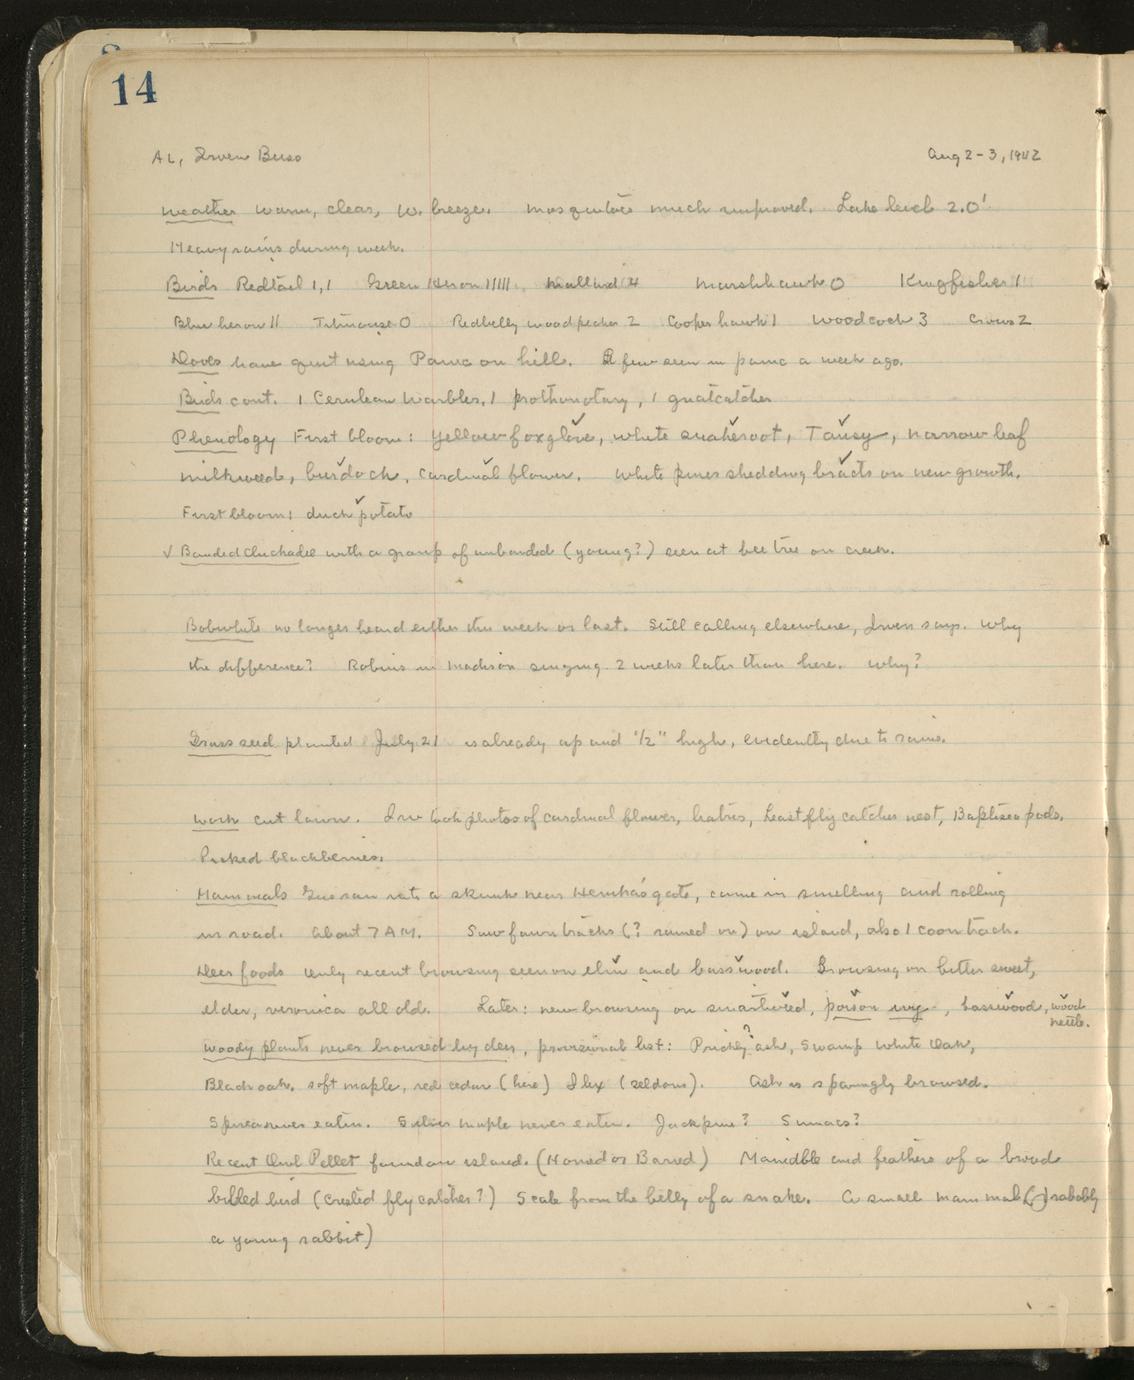 14
AL, Irven Buss Aug 2-3, 1942
Weather Warm, clear, W. breeze. Mosquitoes much improved. Lake level 2.0'
Heavy rains during week.
Birds Redtail 1,1 Green Heron 11111, Mallard 4 Marshhawk 0 Kingfisher 1
Blue heron 11 Titmouse 0 Redbelly woodpecker 2 Cooper hawk 1 Woodcock 3 Crows 2
Doves have quit using Panic on hill. A few seen in panic a week ago.
Birds cont. 1 Cerulean Warbler, 1 prothonotary, 1 gnatcatcher
Phenology First bloom: Yellow foxglove, white snakeroot, Tansy, narrow leaf
milkweed, burdock, cardinal flower. White pines shedding bracts on new growth.
First bloom: duck potato
✓ Banded Chickadee with a group of unbanded (young?) seen at bee tree on creek.
Bobwhite no longer heard either this week or last. Still calling elsewhere, Irven says. Why
the difference? Robins in Madison singing 2 weeks later than here. Why?
Grass seed planted July 21 is already up and 1/2" high, evidently due to rains.
Work cut lawn. Irv took photos of cardinal flower, liatris, Least flycatcher nest, Baptisia pods.
Picked blackberries.
Mammals Gus ran into a skunk near gate, came in smelling and rolling
in road. About 7 AM. Saw fawn tracks (? rained on) on island, also 1 coon track.
Deer foods Only recent browsing seen on elm and basswood. Browsing on bitter sweet,
elder, veronica all old. Later: new browsing on smartweed, poison ivy, basswood, wood
nettle.
Woody plants never browsed by deer, provisional list: Prickly ?ash, Swamp White Oak,
Black oak, soft maple, red cedar (here) Ilex (seldom). Ash is sparingly browsed.
Spirea never eaten. Silver maple never eaten. Jackpine? Sumacs?
Recent Owl Pellet found on island. (Horned or Barred) Mandible and feathers of a broad
billed bird (crested flycatcher?) Scale from the belly of a snake. A small mammal (probably
a young rabbit)